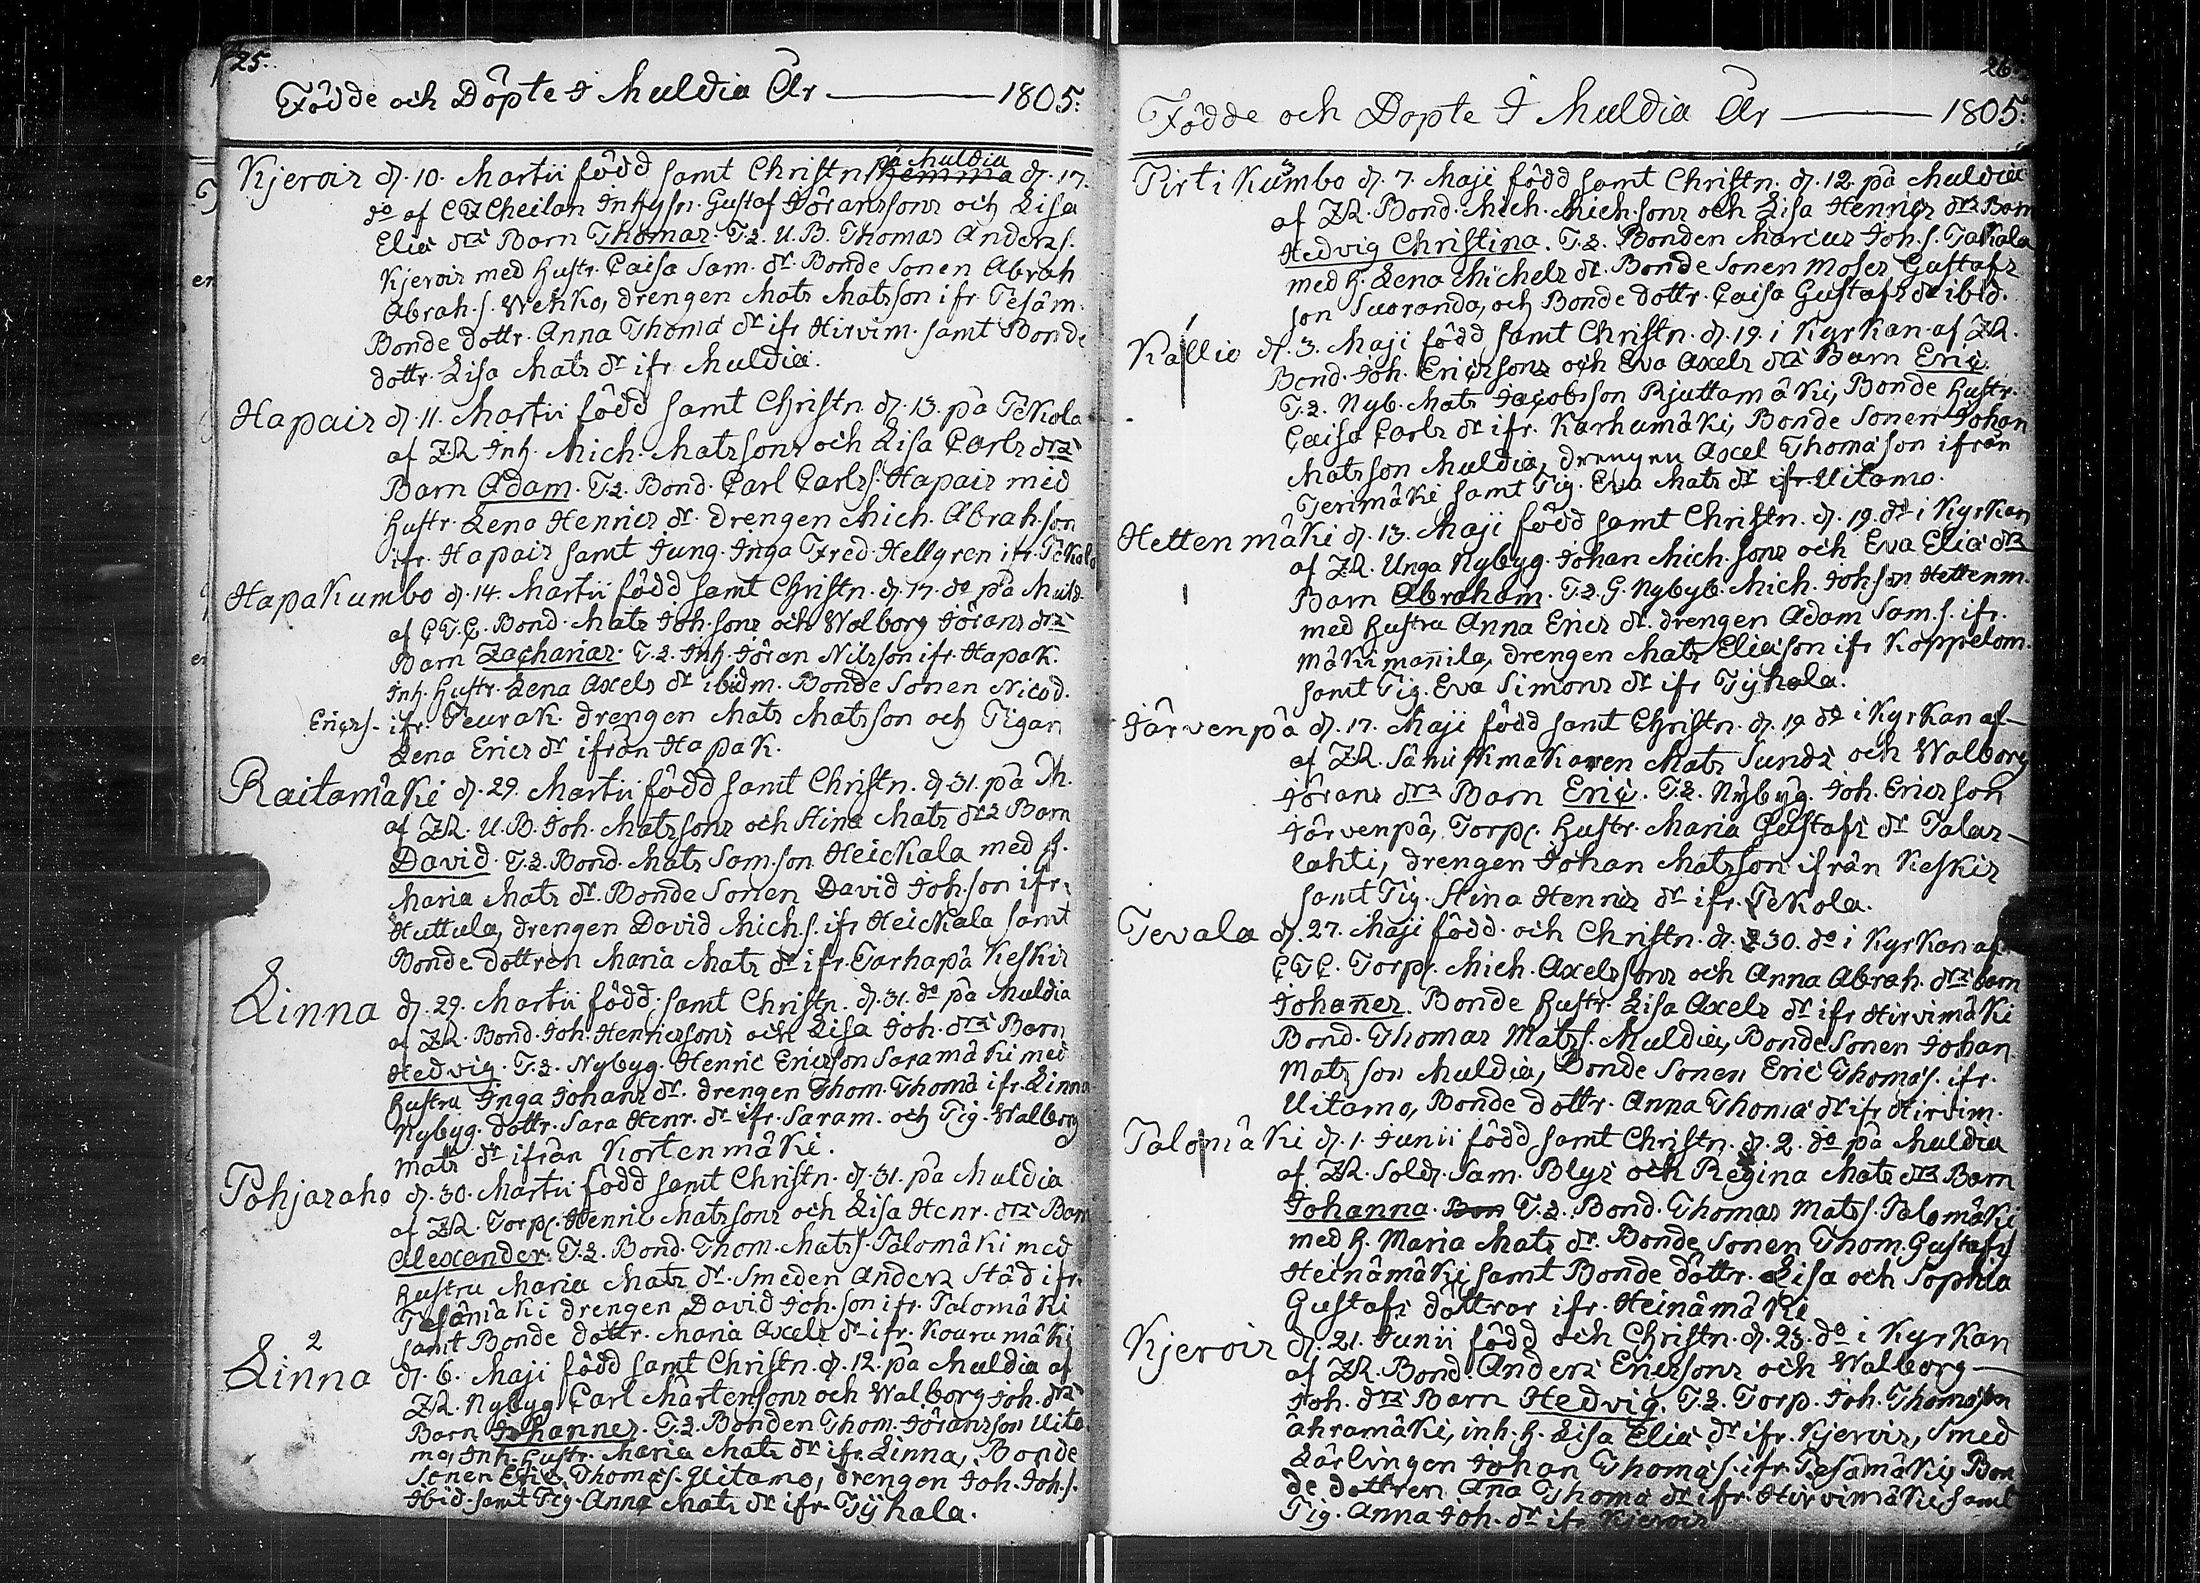 25.
Födde och Döpte I Muldia År — 1805.
på Muldia
Kjerois d. 10. Martii född samt Christn. hemma d. 17.
do af Inhysn. Gustaf Jöranssons och Lisa
Eliæ drs Barn Thomas. T.2. U.B. Thomas Anders s.
Kjerois med hustr. Caisa Sam. dr. Bonde Sonen Abrah
Abrah. s. Wehko, drengen Mats Matsson ifr. Pesäm.
Bonde dottr. Anna Thomæ dr ifr Hirvim. samt Bonde
dottr. Lisa Mats dr ifr Muldia.
Hapais d. 11. Martii född samt Christn. d. 13. på Pekola
af ZR Inh. Mich. Matssons och Lisa Carls drs
Barn Adam. T.2. Bond. Carl Carls s. Hapais med
hustr. Lena Henrics dr. drengen Mich. Abrah. son
ifr. Hapais samt Jung. Inga Fred. Hellgren ifr. Pekola
Hapakumbo d. 14. Martii född samt Christn. d. 17. do på Muld.
af C.T.C. Bond. Mats Joh. sons och Walborg Jörans drs
Barn Zacharias. T.2. Inh. Jöran Nilsson ifr Hapak.
Inh. hustr. Lena Axels dr ibidm. Bonde Sonen Nicod.
Ericss. ifr. Peurak. drengen Mats Matsson och Pigan
Lena Erics dr ifrån Hapak.
Raitamäki d. 29. Martii född samt Christn. d. 31. på M.
af ZR. U.B. Joh. Matssons och Stina Mats drs Barn
David. T.2. Bond. Mats Sam. son Heickala med h.
Maria Mats dr. Bonde Sonen David Joh. son ifr.
Huttula, drengen David Mich. s. ifr Heickala samt
Bonde dottren Maria Mats dr ifr. Tarhapä Keskis
Linna d. 29. Martii född samt Christn. d. 31. do på Muldia
af ZR. Bond. Joh. Henricssons och Lisa Joh. drs Barn
Hedvig. T.2. Nybyg. Henric Ericsson Saramäki med
hustru Inga Johans dr. drengen Thom. Thomæ ifr. Linna
Nybyg. dottr. Sara Henr. dr ifr. Saram. och Pig. Walborg
Mats dr ifrån Kortenmäki.
Pohjaraho d. 30. Martii född samt Christn. d. 31. på Muldia
af ZR. Torp. Henric Matssons och Lisa Henr. drs Barn
Alexander. T.2. Bond. Thom. Mats s. Palomäki med
hustru Maria Mats dr. Smeden Anders Städ ifr.
Pesämäki drengen David Joh. son ifr. Palomäki
samt Bonde dottr. Maria Axels dr ifr. Kourumäki
2
Linna d. 6. Maji född samt Christn. d. 12. på Muldia af
ZR. Nybyg Carl Mårtensons och Walborg Joh. drs
Barn Johannes. T.2. Bonden Thom. Jöransson Uita
mo, Inh. hustr. Maria Mats dr ifr. Linna, Bonde
Sonen Eric Thomæ s. Uitamo, drengen Joh. Joh. s.
Ibid. samt Pig. Anna Mats dr ifr. Pyhala.
26.
Födde och Dopte I Muldia År — 1805.
Pirtikumbo d. 7. Maji född samt Christn. d. 12. på Muldia
af ZR. Bond. Mich. Mich. sons och Lisa Henrics drs Barn
Hedvig Christina. T.2. Bonden Marcus Joh. s. Takala
med h. Lena Michels dr. Bonde Sonen Moses Gustafs
son Suoranda, och Bonde dottr. Caisa Gustafs dr ibid.
Kallio d. 3. Maji född samt Christn. d. 19. i Kyrkan af ZR.
Bond. Joh. Ericssons och Eva Axels drs Barn Eric.
T.2. Nyb. Mats Jacobsson Rjuttamäki, Bonde hustr.
Caisa Carls dr ifr. Karhumäki, Bonde Sonen Johan
Matsson Muldia, drengen Axel Thomæson ifrån
Terimäki samt Pig. Eva Mats dr ifr. Uitamo.
Hettenmäki d. 13. Maji född samt Christn. d. 19. do i Kyrkan
af ZR. Unga Nybyg. Johan Mich. sons och Eva Eliæ drs
Barn Abraham. T.2. G. Nybyb. Mich. Joh. son Hettenm.
med hustru Anna Erics dr. drengen Adam Sam. s. ifr.
Mäkimañila, drengen Mats Eliæson ifr Koppelom.
samt Pig. Eva Simons dr ifr Pyhala.
Järvenpä d. 17. Maji född samt Christn. d. 19 do i Kyrkan af
af ZR. Sämiskmakaren Mats Sunds och Walborg
Jörans drs Barn Eric. T.2. Nybyg. Joh. Ericsson
Järvenpä, Torp. hustr. Maria Gustafs dr Palas-
lahti, drengen Johan Matsson ifrån Keskis
samt Pig. Stina Henrics dr ifr. Pekola.
Tevala d. 27. Maji född. och Christn. d. 30. do i Kyrkan af
C T C. Torp. Mich. Axelssons och Anna Abrah. drs barn
Johañes. Bonde hustr. Lisa Axels dr ifr Hirvimäki
Bond. Thomas Mats s. Muldia, Bonde Sonen Johan
Matsson Muldia, Bonde Sonen Eric Thomæ s. ifr.
Uitamo, Bonde dottr. Anna Thomæ dr ifr Hirvim.
Palomäki d. 1. Junii född samt Christn. d. 2. do på Muldia
af ZR. Sold. Sam. Blys och Regina Mats drs Barn
Johanna. Bon T.2. Bond. Thomas Mats s. Palomäki
med h. Maria Mats dr. Bonde Sonen Thom. Gustafs s
Heinämäki samt Bonde döttr. Lisa och Sophia
Gustafs döttrar ifr. Heinämäki
Kjerois d. 21. Junii född och Christn. d. 23. do i Kyrkan
af ZR. Bond. Anders Ericssons och Walborg
Joh. drs Barn Hedvig. T.2. Torp. Joh. Thomæson
Ahramäki, inh. h. Lisa Eliæ dr ifr. Kjerois, Smed
Lärlingen Johan Thomæ s. ifr. Pesämäki, Bon
de dottren Aña Thomæ dr ifr. Hirvimäki, samt
Pig. Anna Joh. dr ifr Kjerois